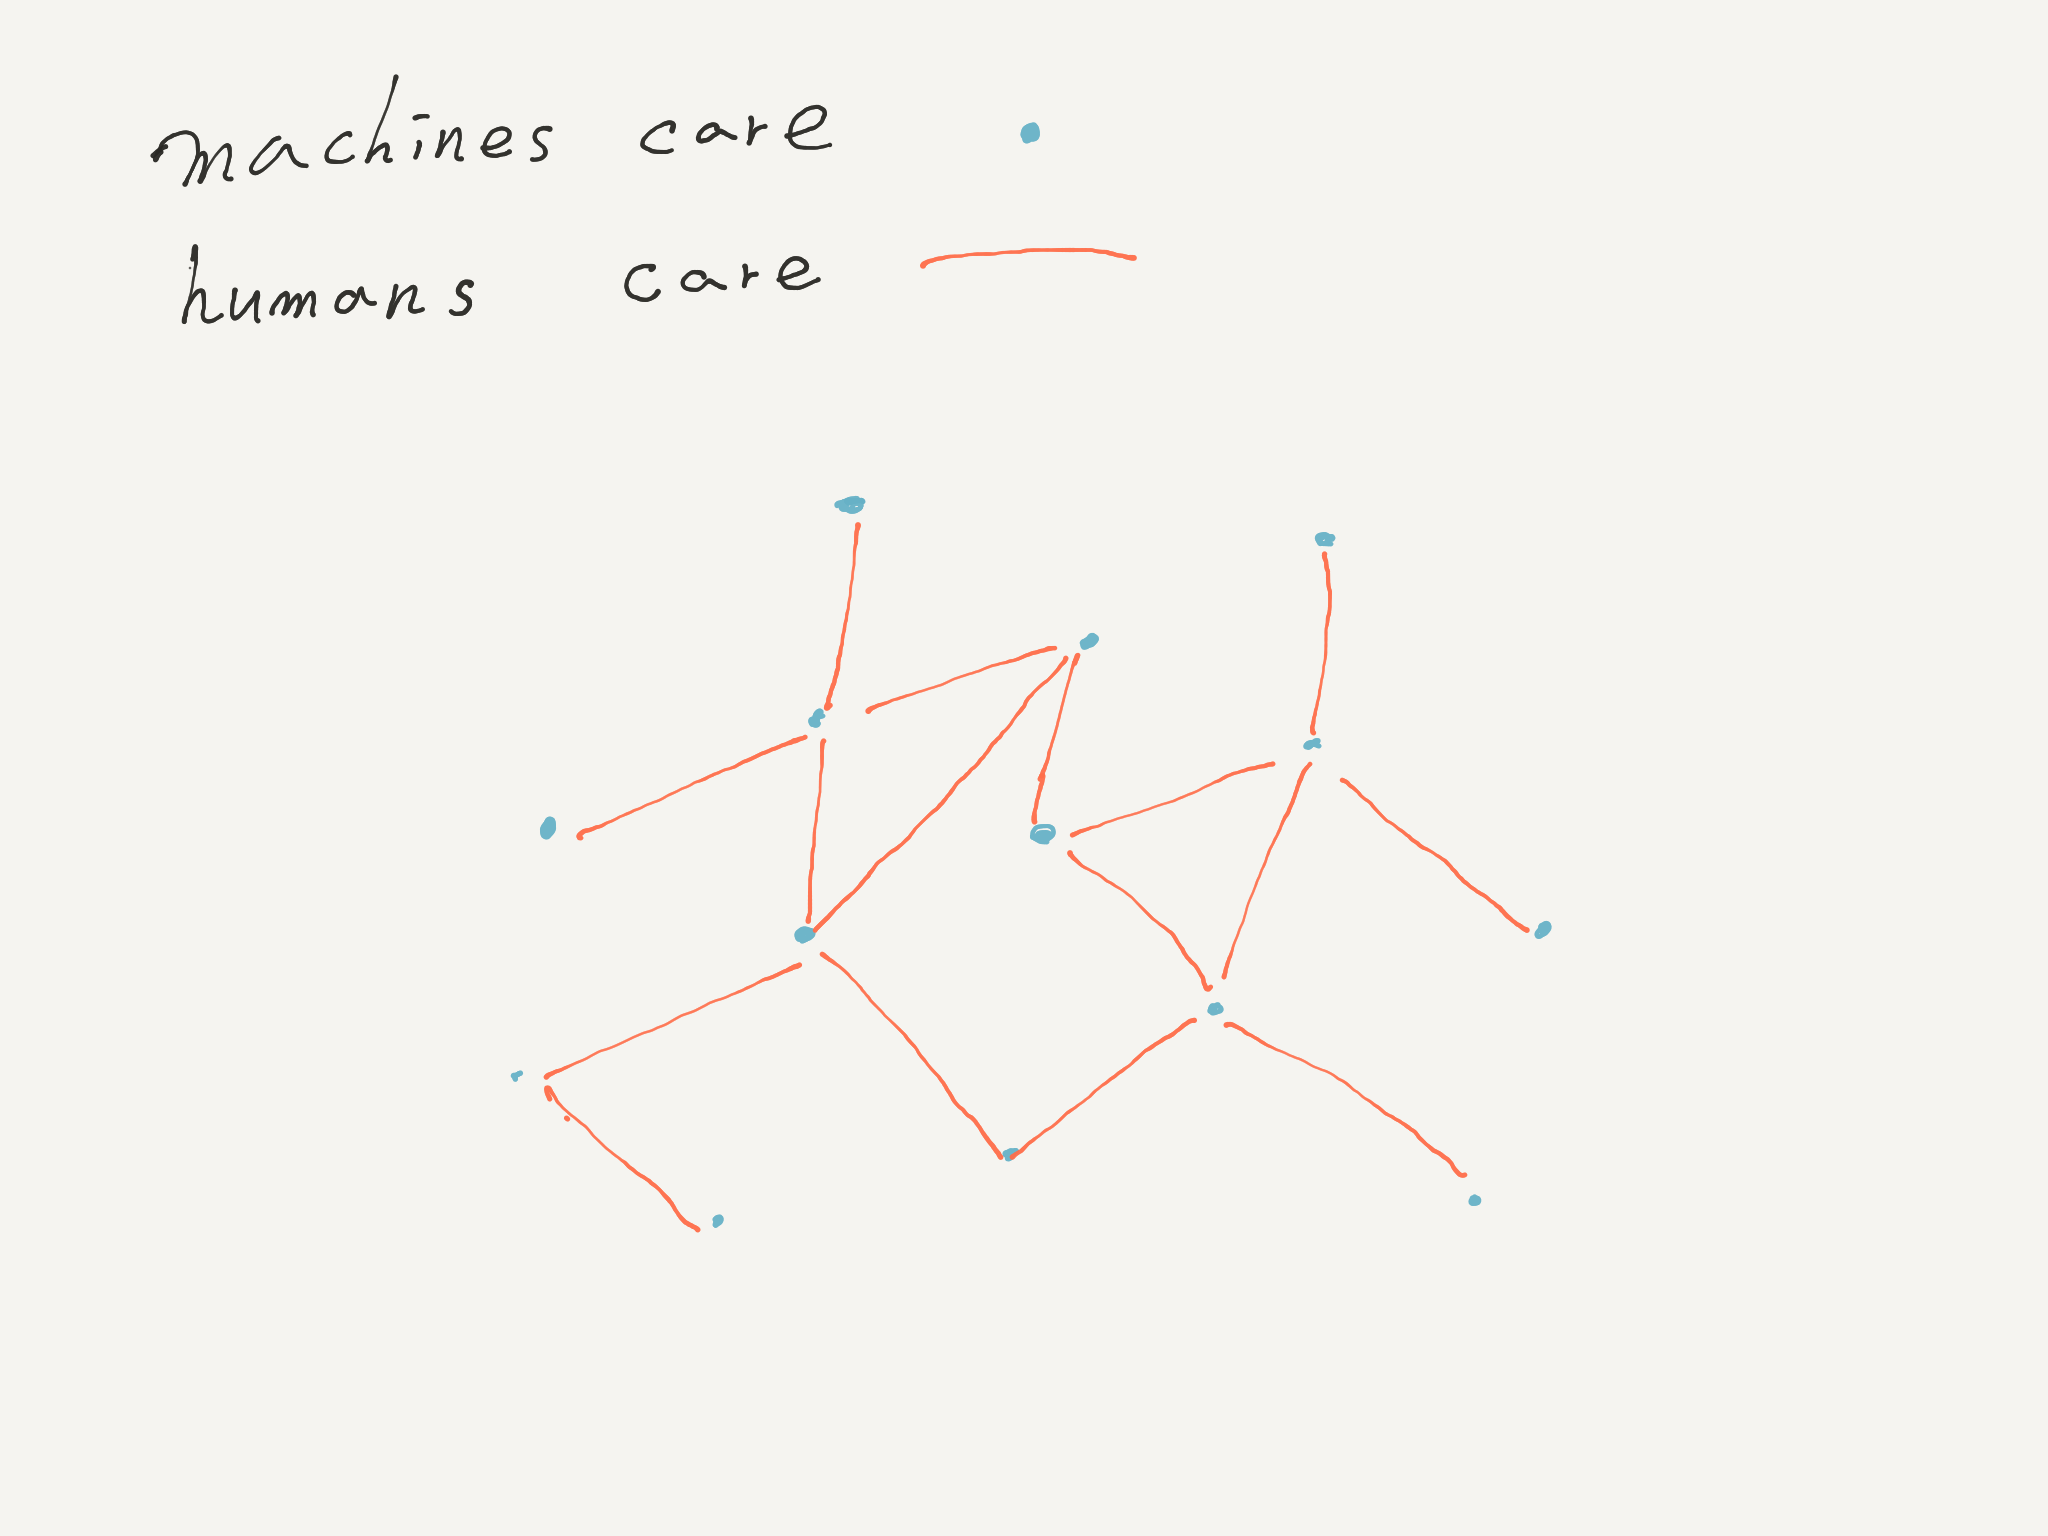 machines care
humans care